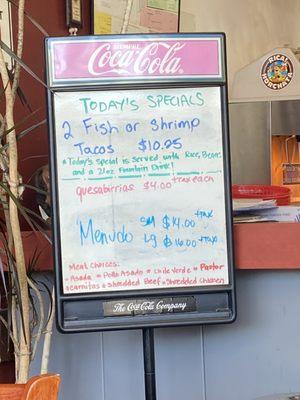 SIEMPRE
Coca-Cola
TODAY'S SPECIALS
2 Fish or Shrimp
Tacos $10.95
*Today's special is served with Rice, Beans
and a 21oz Fountain Drink!
quesabirrias $4.00 +tax each
Menudo SM $14.00 +tax
LG $16.00 +tax
Meat Choices:
*Asada *Pollo Asado *Chile Verde *Pastor
*Carnitas *Shredded Beef *Shredded Chicken
The Coca-Cola Company
RICAL
HORCHATA